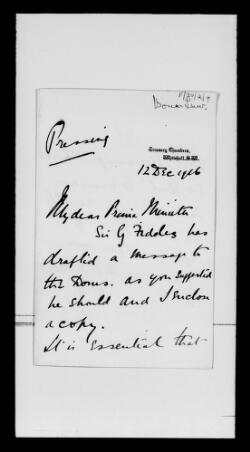 Pressing
Treasury Chambers,
Whitehall, S.W.
12 Dec 1916
My dear Prime Minister
Sir G Fiddes has
drafted a message to
the Doms. as you suggested
he should and I enclose
a copy.
It is essential that